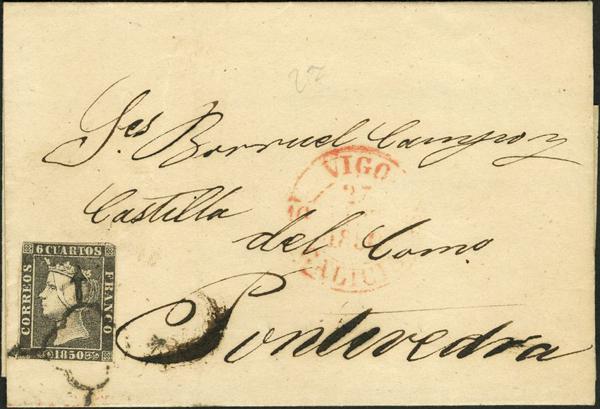 22
Ses Borruel Campo y
Castilla
del Como
Pontevedra
VIGO
27
10
GALICIA
6 CUARTOS
CORREOS
FRANCO
1850